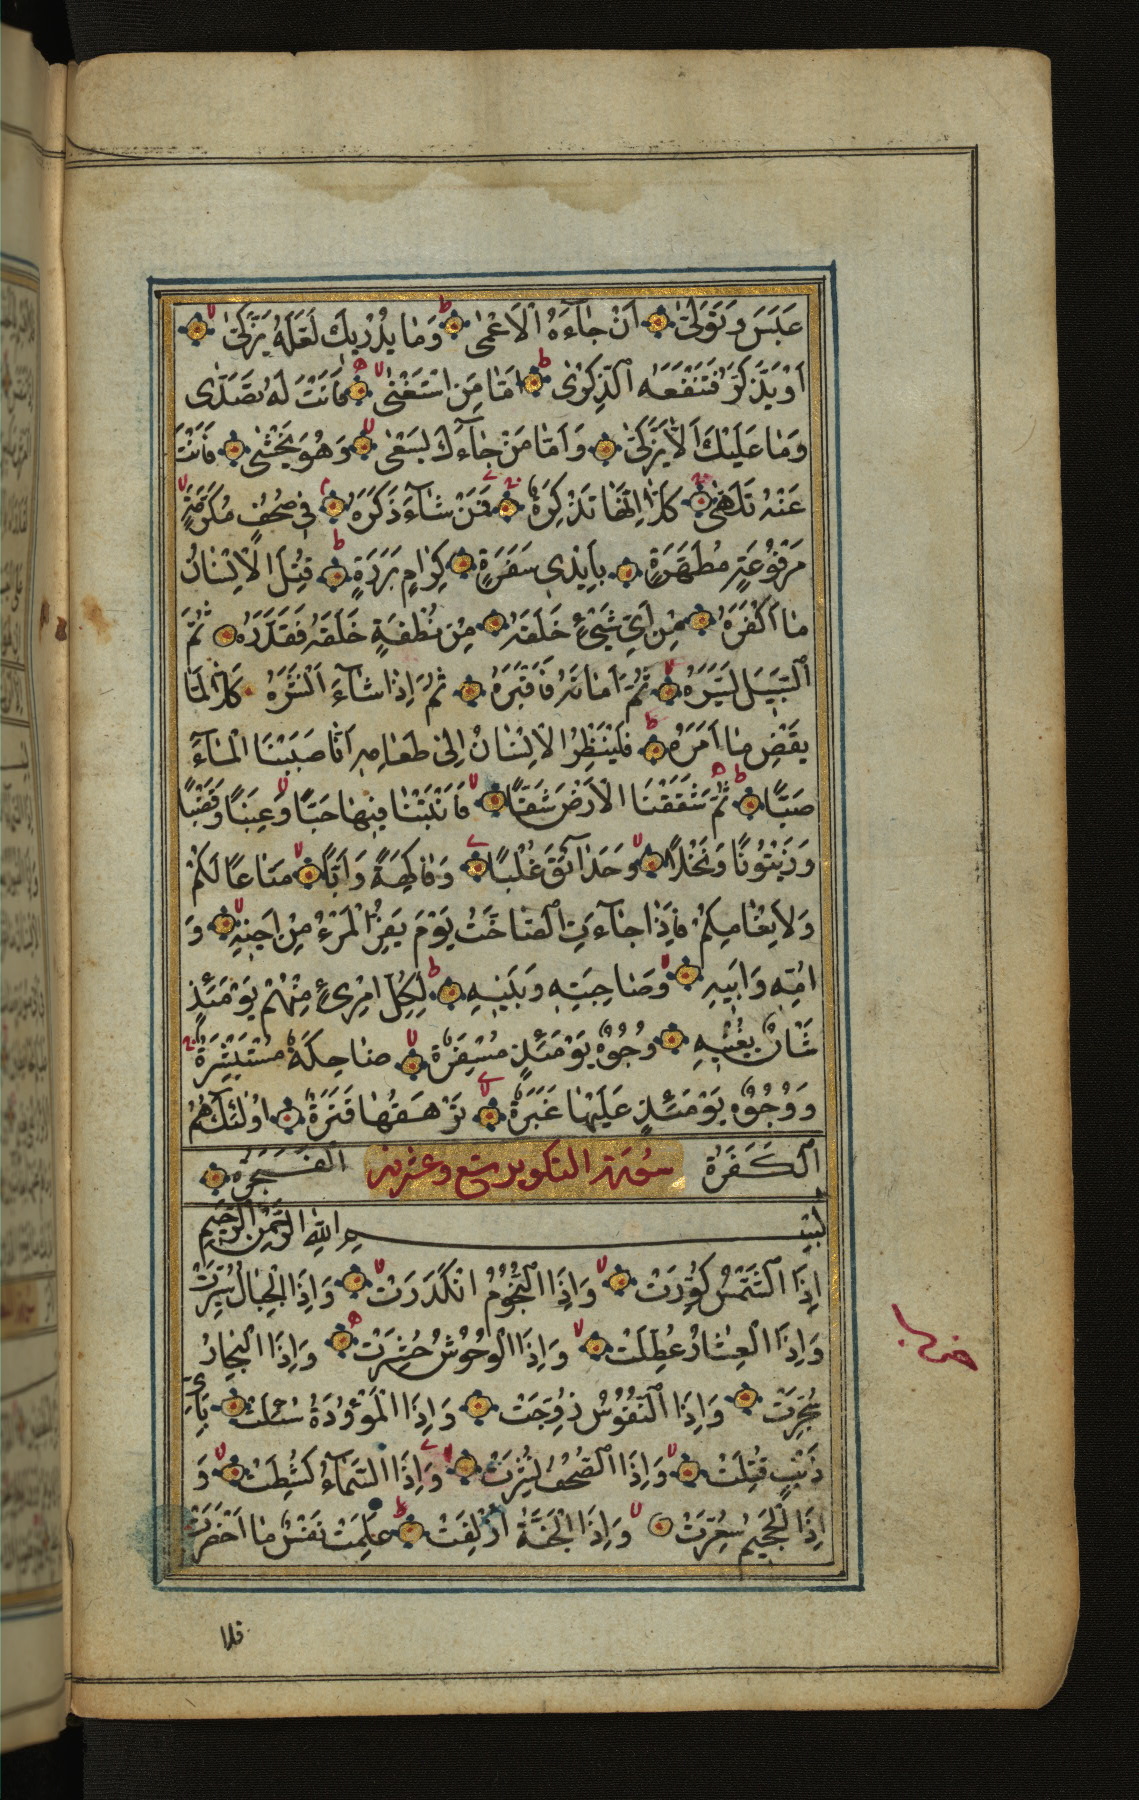 عَبَسَ وَتَوَلّٰىٓ اَنْ جٰآءَهُ الْاَعْمٰى وَمٰا يُدْرِيكَ لَعَلَّهُ يَزَّكّٰىٓ
اَوْ يَذَّكَّرُ فَتَنْفَعَهُ الذِّكْرٰى اَمّٰا مَنِ اسْتَغْنٰى فَاَنْتَ لَهُ تَصَدّٰى
وَمٰا عَلَيْكَ اَلّٰا يَزَّكّٰى وَاَمّٰا مَنْ جٰآءَكَ يَسْعٰى وَهُوَ يَخْشٰى فَاَنْتَ
عَنْهُ تَلَهّٰى كَلّٰآ اِنَّهٰا تَذْكِرَةٌ فَمَنْ شٰآءَ ذَكَرَهُ فِى صُحُفٍ مُكَرَّمَةٍ
مَرْفُوعَةٍ مُطَهَّرَةٍ بِاَيْدِى سَفَرَةٍ كِرٰامٍ بَرَرَةٍ قُتِلَ الْاِنْسٰانُ
مٰا اَكْفَرَهُ مِنْ اَيِّ شَيْءٍ خَلَقَهُ مِنْ نُطْفَةٍ خَلَقَهُ فَقَدَّرَهُ ثُمَّ
السَّبِيلَ يَسَّرَهُ ثُمَّ اَمٰاتَهُ فَاَقْبَرَهُ ثُمَّ اِذٰا شٰآءَ اَنْشَرَهُ كَلّٰا لَمّٰا
يَقْضِ مٰا اَمَرَهُ فَلْيَنْظُرِ الْاِنْسٰانُ اِلٰى طَعٰامِهِ اَنّٰا صَبَبْنَا الْمٰآءَ
صَبًّا ثُمَّ شَقَقْنَا الْاَرْضَ شَقًّا فَاَنْبَتْنٰا فِيهٰا حَبًّا وَعِنَبًا وَقَضْبًا
وَزَيْتُونًا وَنَخْلًا وَحَدٰآئِقَ غُلْبًا وَفٰاكِهَةً وَاَبًّا مَتٰاعًا لَكُمْ
وَلِاَنْعٰامِكُمْ فَاِذٰا جٰآءَتِ الصّٰاخَّةُ يَوْمَ يَفِرُّ الْمَرْءُ مِنْ اَخِيهِ وَ
اُمِّهِ وَاَبِيهِ وَصٰاحِبَتِهِ وَبَنِيهِ لِكُلِّ امْرِئٍ مِنْهُمْ يَوْمَئِذٍ
شَاْنٌ يُغْنِيهِ وُجُوهٌ يَوْمَئِذٍ مُسْفِرَةٌ ضٰاحِكَةٌ مُسْتَبْشِرَةٌ
وَوُجُوهٌ يَوْمَئِذٍ عَلَيْهٰا غَبَرَةٌ تَرْهَقُهٰا قَتَرَةٌ اُولٰئِكَ هُمُ
الْكَفَرَةُ سورة التكوير تسع وعشرين الْفَجَرَةُ
بِسْمِ اللّٰهِ الرَّحْمٰنِ الرَّحِيمِ
اِذَا الشَّمْسُ كُوِّرَتْ وَاِذَا النُّجُومُ انْكَدَرَتْ وَاِذَا الْجِبٰالُ سُيِّرَتْ
وَاِذَا الْعِشٰارُ عُطِّلَتْ وَاِذَا الْوُحُوشُ حُشِرَتْ وَاِذَا الْبِحٰارُ
سُجِّرَتْ وَاِذَا النُّفُوسُ زُوِّجَتْ وَاِذَا الْمَوْؤُدَةُ سُئِلَتْ بِاَيِّ
ذَنْبٍ قُتِلَتْ وَاِذَا الصُّحُفُ نُشِرَتْ وَاِذَا السَّمٰآءُ كُشِطَتْ وَ
اِذَا الْجَحِيمُ سُعِّرَتْ وَاِذَا الْجَنَّةُ اُزْلِفَتْ عَلِمَتْ نَفْسٌ مٰا اَحْضَرَتْ
فلا